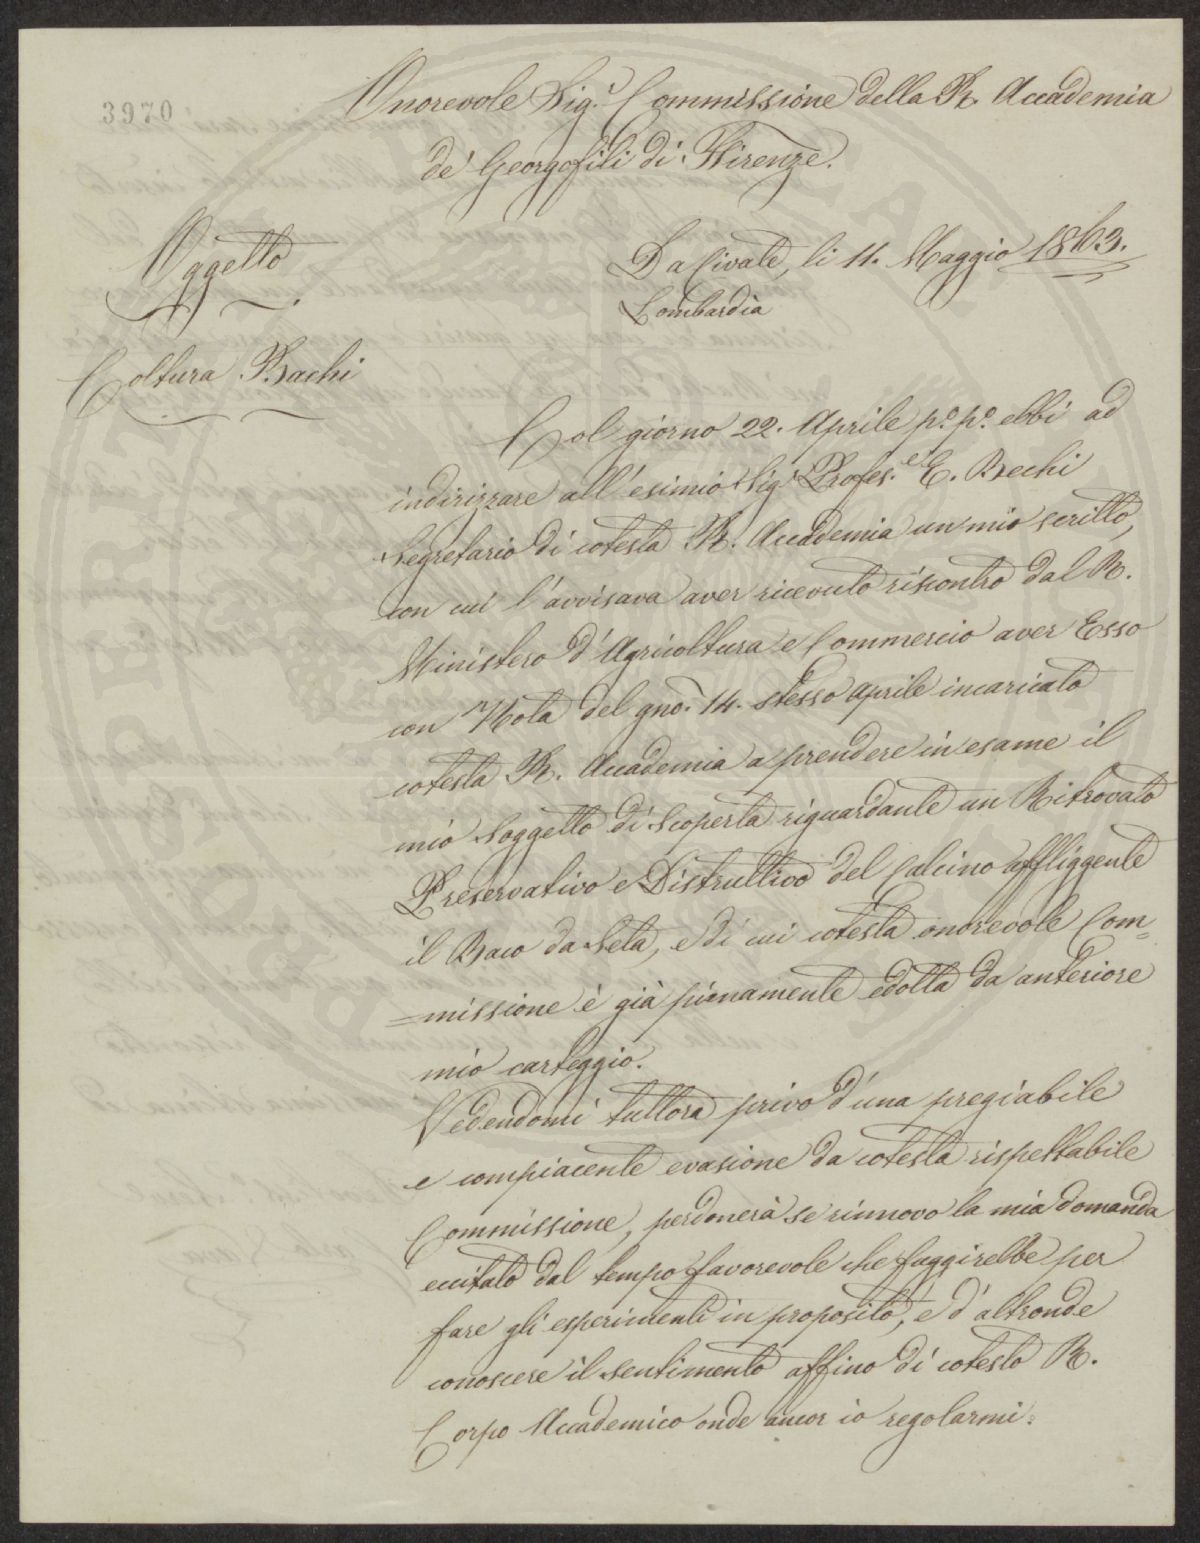 3970
Onorevole Sig.r Commissione della R. Accademia
de' Georgofili di Firenze.
Oggetto
Da Civate, li 11. Maggio 1863.
Lombardia
Coltura Bachi
Col giorno 22. Aprile p.o p.o ebbi ad
indirizzare all'esimio Sig.r Profes.e E. Bechi
Segretario di cotesta R. Accademia un mio scritto,
con cui l'avvisava aver ricevuto riscontro dal R.
Ministero d'Agricoltura e Commercio aver Esso
con Nota del gno. 14. stesso Aprile incaricato
cotesta R. Accademia a prendere in esame il
mio Soggetto di Scoperta riguardante un Ritrovato
Preservativo e Distruttivo del Calcino affliggente
il Baco da Seta, e di cui cotesta onorevole Com=
=missione è già pienamente edotta da anteriore
mio carteggio.
Vedendomi tuttora privo d'una pregiabile
e compiacente evasione da cotesta rispettabile
Commissione, perdonerà se rinnovo la mia domanda
eccitato dal tempo favorevole che fuggirebbe per
fare gli esperimenti in proposito, e d'altronde
conoscere il sentimento affino di cotesto R.
Corpo Accademico onde ancor io regolarmi.